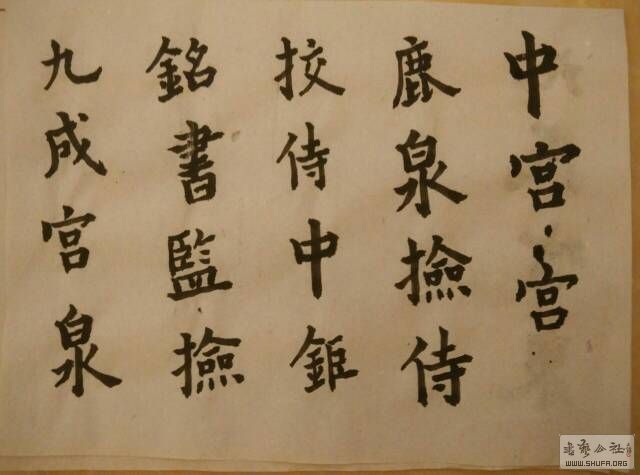 九成宮泉
銘書監撿
挍侍中鉅
鹿泉撿侍
中宮宮
書藝公社
WWW.SHUFA.ORG